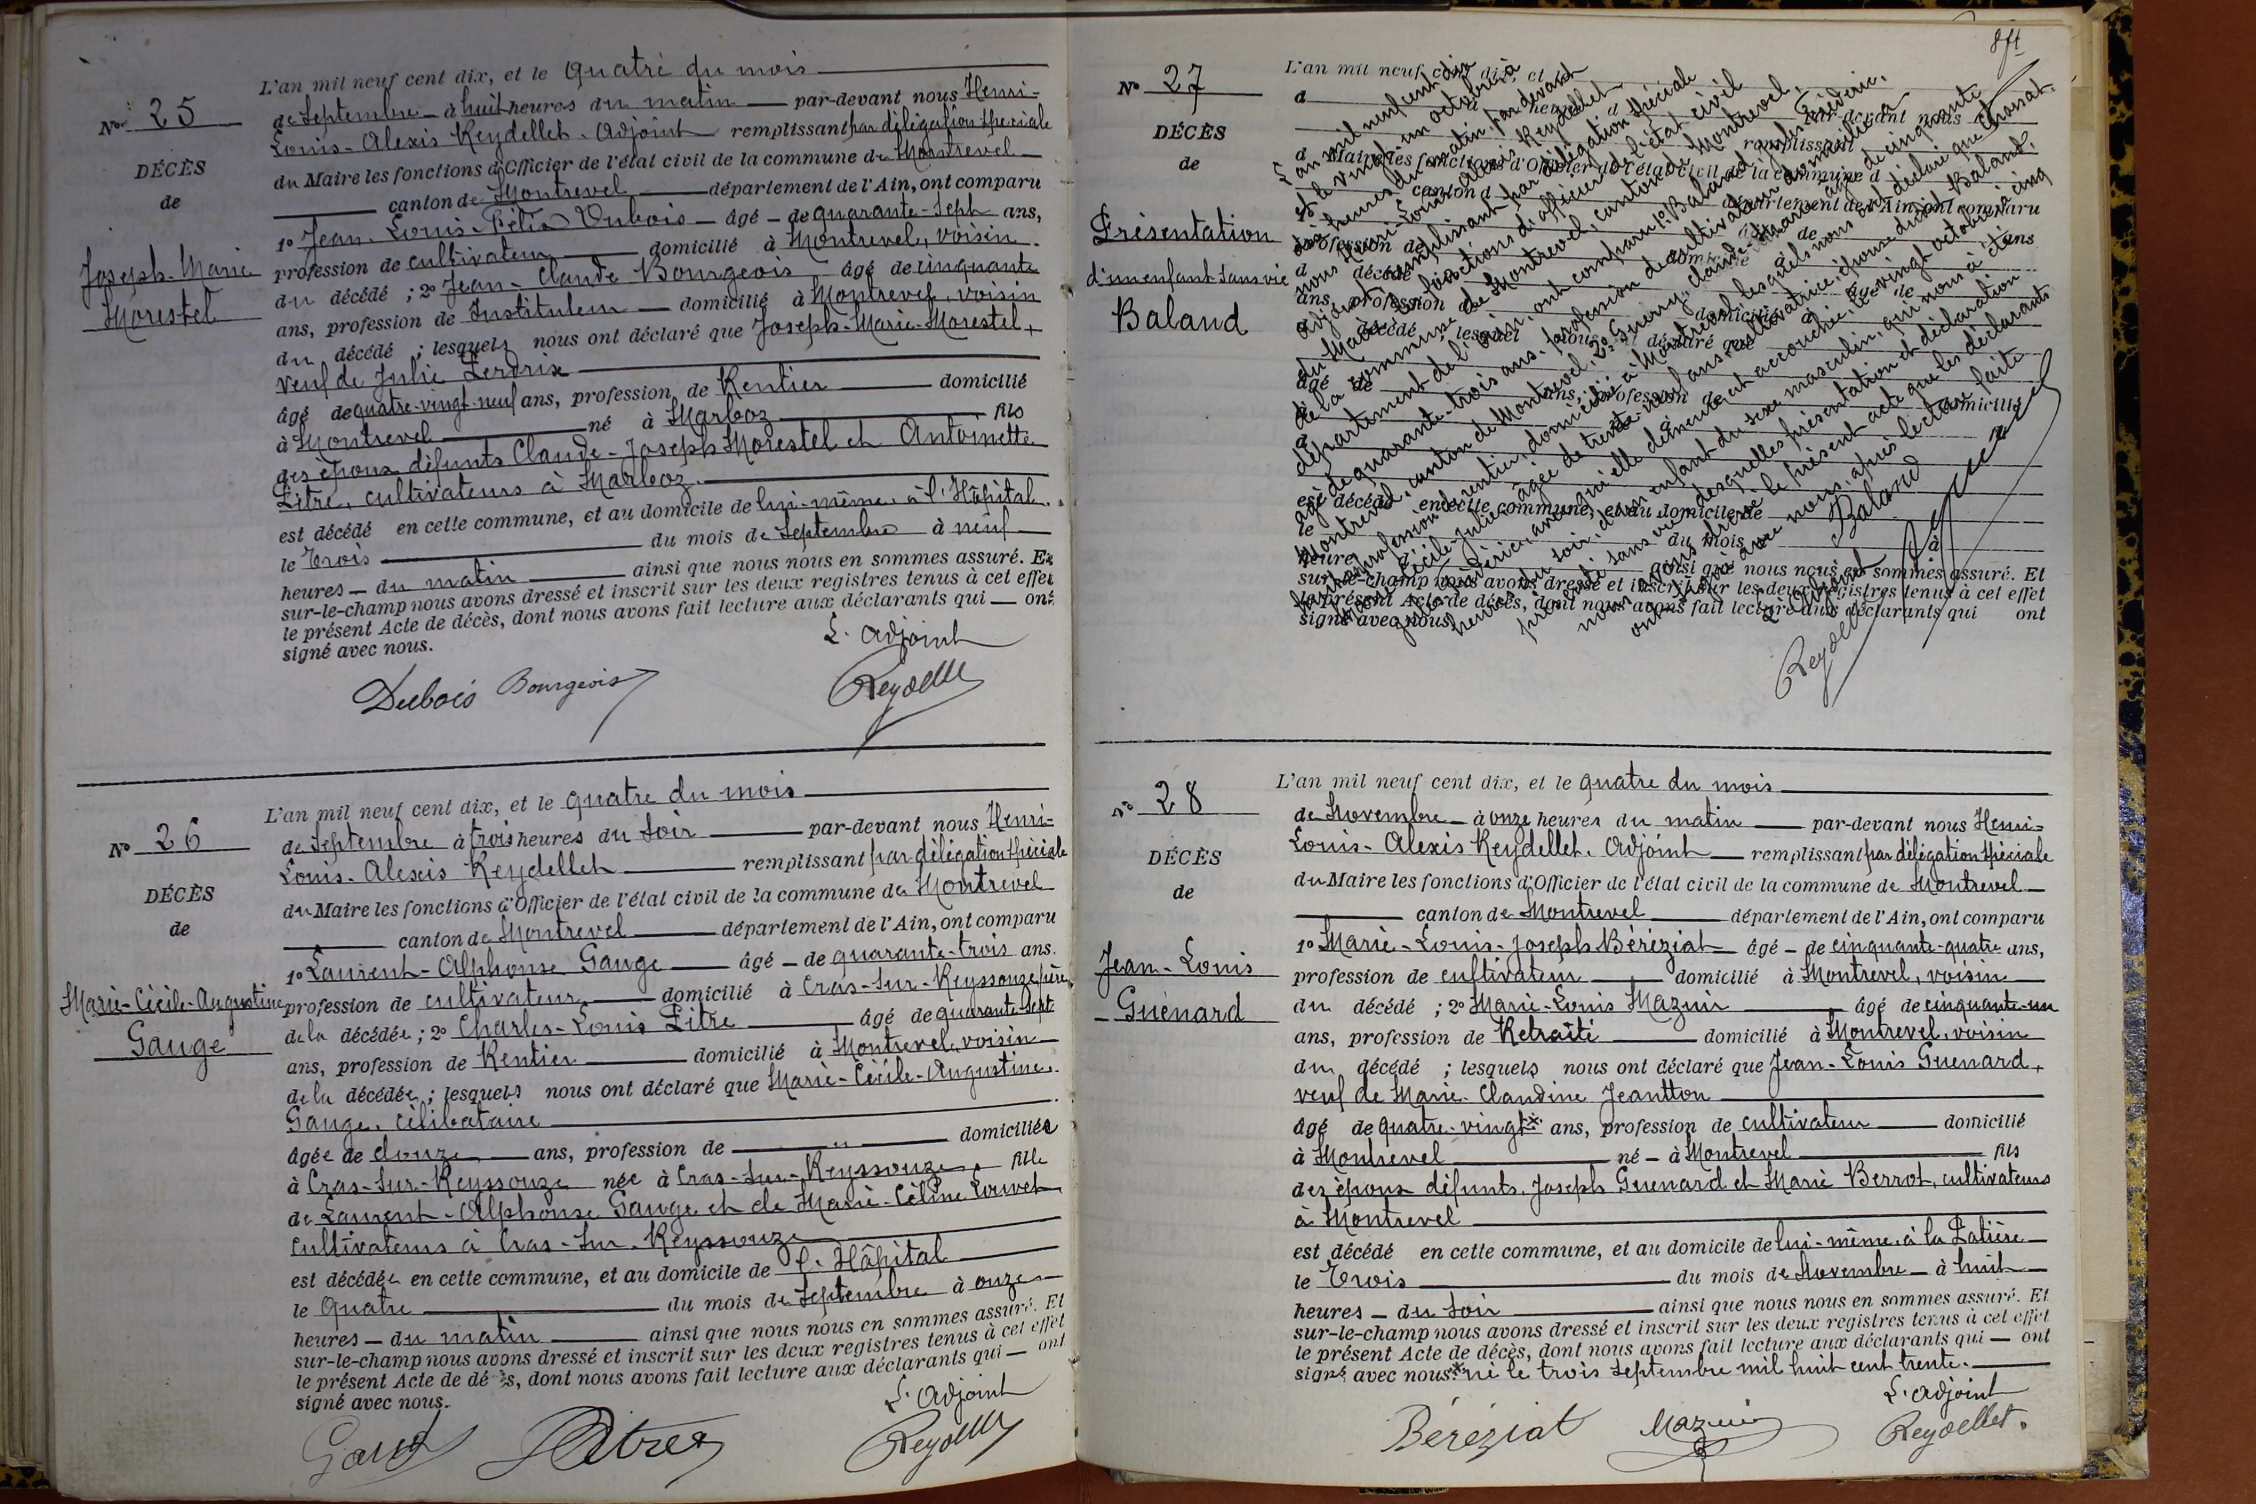 No 25
DÉCÈS
de
Joseph-Marie
Morestel
L'an mil neuf cent dix, et le quatre du mois
de Septembre à huit heures du matin par-devant nous Henri-
Louis-Alexis Reydellet. Adjoint remplissant par délégation spéciale
du Maire les fonctions d'Officier de l'état civil de la commune de Montrevel
canton de Montrevel département de l'Ain, ont comparu
1o Jean-Louis-Félix Dubois âgé de quarante-sept ans,
profession de cultivateur domicilié à Montrevel, voisin
du décédé ; 2o Jean-Claude Bourgeois âgé de cinquante
ans, profession de Instituteur domicilié à Montrevel, voisin
du décédé ; lesquels nous ont déclaré que Joseph-Marie-Morestel,
veuf de Julie Perdrix
âgé de quatre-vingt-neuf ans, profession de Rentier domicilié
à Montrevel né à Marboz fils
des époux défunts Claude-Joseph Morestel et Antoinette
Pitre, cultivateurs à Marboz.
est décédé en cette commune, et au domicile de lui-même, à l'Hôpital.
le trois du mois de Septembre à neuf
heures du matin ainsi que nous nous en sommes assuré. Et
sur-le-champ nous avons dressé et inscrit sur les deux registres tenus à cet effet
le présent Acte de décès, dont nous avons fait lecture aux déclarants qui ont
signé avec nous.
L'adjoint
Dubois Bourgeois Reydellet
No 26
DÉCÈS
de
Marie-Cécile-Augustine
Gauge
L'an mil neuf cent dix, et le quatre du mois
de Septembre à trois heures du soir par-devant nous Henri-
Louis-Alexis Reydellet remplissant par délégation spéciale
du Maire les fonctions d'Officier de l'état civil de la commune de Montrevel
canton de Montrevel département de l'Ain, ont comparu
1o Laurent-Alphonse Gauge âgé de quarante-trois ans.
profession de cultivateur domicilié à Cras-sur-Reyssouze, père
de la décédée ; 2o Charles-Louis Pitre âgé de quarante-sept
ans, profession de Rentier domicilié à Montrevel, voisin
de la décédée ; lesquels nous ont déclaré que Marie-Cécile-Augustine
Gauge, célibataire
âgée de douze ans, profession de " domiciliée
à Cras-sur-Reyssouze née à Cras-sur-Reyssouze fille
de Laurent-Alphonse Gauge et de Marie-Céline Louvet
cultivateurs à Cras-sur-Reyssouze
est décédée en cette commune, et au domicile de l'Hôpital
le quatre du mois de Septembre à onze
heures du matin ainsi que nous nous en sommes assuré. Et
sur-le-champ nous avons dressé et inscrit sur les deux registres tenus à cet effet
le présent Acte de décès, dont nous avons fait lecture aux déclarants qui ont
signé avec nous.
L'adjoint
Pitre Reydellet
No 27
DÉCÈS
de
Présentation
d'un enfant sans vie
Baland
L'an mil neuf cent dix
et le vingt-un octobre à
dix heures du matin, par devant
nous Henri-Louis-Alexis Reydellet
adjoint remplissant par délégation spéciale
du Maire les fonctions d'officier de l'état civil
de la commune de Montrevel, canton de Montrevel,
département de l'Ain, ont comparu 1o Baland Jules-Frédéric,
âgé de quarante-trois ans, profession de cultivateur domicilié à
Montrevel, canton de Montrevel, 2o Guerry, Claude-Marie âgé de cinquante
ans, profession de rentier, domicilié à Montrevel, lesquels nous ont déclaré que Chossat
Marie Cécile-Julie âgée de trente-neuf ans, cultivatrice, épouse dudit Baland,
Jules Frédéric, avec qui elle demeure, est accouchée, le vingt octobre à cinq
heures du soir, d'un enfant du sexe masculin, qui nous a été
présenté sans vie, desquelles présentation et déclaration
nous avons dressé le présent acte que les déclarants
ont signé avec nous, après lecture faite
Baland
L'adjoint
Reydellet
L'an mil neuf cent dix, et
No 28
DÉCÈS
de
Jean-Louis
Guénard
L'an mil neuf cent dix, et le quatre du mois
de Novembre à onze heures du matin par-devant nous Henri-
Louis-Alexis Reydellet. Adjoint remplissant par délégation spéciale
du Maire les fonctions d'Officier de l'état civil de la commune de Montrevel
canton de Montrevel département de l'Ain, ont comparu
1o Marie-Louis-Joseph Béréziat âgé de cinquante-quatre ans,
profession de cultivateur domicilié à Montrevel, voisin
du décédé ; 2o Marie-Louis Mazuir âgé de cinquante-un
ans, profession de Retraité domicilié à Montrevel, voisin
du décédé ; lesquels nous ont déclaré que Jean-Louis Guenard,
veuf de Marie-Claudine Jeantton
âgé de quatre-vingt* ans, profession de cultivateur domicilié
à Montrevel né à Montrevel fils
des époux défunts, Joseph Guenard et Marie Berrot, cultivateurs
à Montrevel
est décédé en cette commune, et au domicile de lui-même, à la Patière
le trois du mois de Novembre à huit
heures du soir ainsi que nous nous en sommes assuré. Et
sur-le-champ nous avons dressé et inscrit sur les deux registres tenus à cet effet
le présent Acte de décès, dont nous avons fait lecture aux déclarants qui ont
signé avec nous. * né le trois Septembre mil huit cent trente.
L'adjoint
Béréziat Mazuir Reydellet.